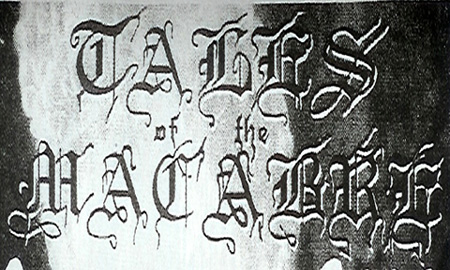 TALES
of the
MACABRE